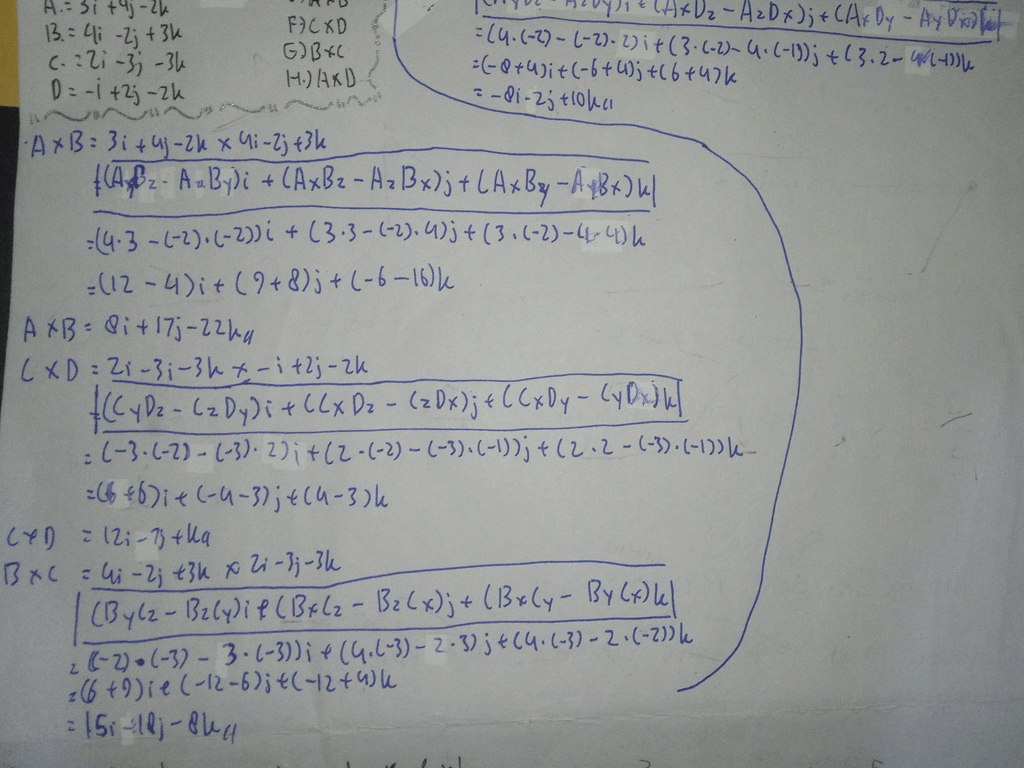 A. = 3i + 4j - 2k
B. = 4i - 2j + 3k
C. = 2i - 3j - 3k
D = -i + 2j - 2k
F.) C x D
G) B x C
H.) A x D
A x B = 3i + 4j - 2k x 4i - 2j + 3k
|(AyBz - AzBy)i + (AxBz - AzBx)j + (AxBy - AyBx)k|
= (4·3 - (-2)·(-2))i + (3·3 - (-2)·4)j + (3·(-2) - 4·4)k
= (12 - 4)i + (9 + 8)j + (-6 - 16)k
A x B = 8i + 17j - 22k
C x D = 2i - 3j - 3k x -i + 2j - 2k
|(CyDz - CzDy)i + (CxDz - CzDx)j + (CxDy - CyDx)k|
= (-3·(-2) - (-3)·2)i + (2·(-2) - (-3)·(-1))j + (2·2 - (-3)·(-1))k
= (6 + 6)i + (-4 - 3)j + (4 - 3)k
C x D = 12i - 7j + k
B x C = 4i - 2j + 3k x 2i - 3j - 3k
|(ByCz - BzCy)i + (BxCz - BzCx)j + (BxCy - ByCx)k|
= (-2)·(-3) - 3·(-3))i + (4·(-3) - 2·3)j + (4·(-3) - 2·(-2))k
= (6 + 9)i + (-12 - 6)j + (-12 + 4)k
= 15i - 18j - 8k
|(AyDz - AzDy)i + (AxDz - AzDx)j + (AxDy - AyDx)k|
= (4·(-2) - (-2)·2)i + (3·(-2) - 4·(-1))j + (3·2 - 4·(-1))k
= (-8 + 4)i + (-6 + 4)j + (6 + 4)k
= -8i - 2j + 10k